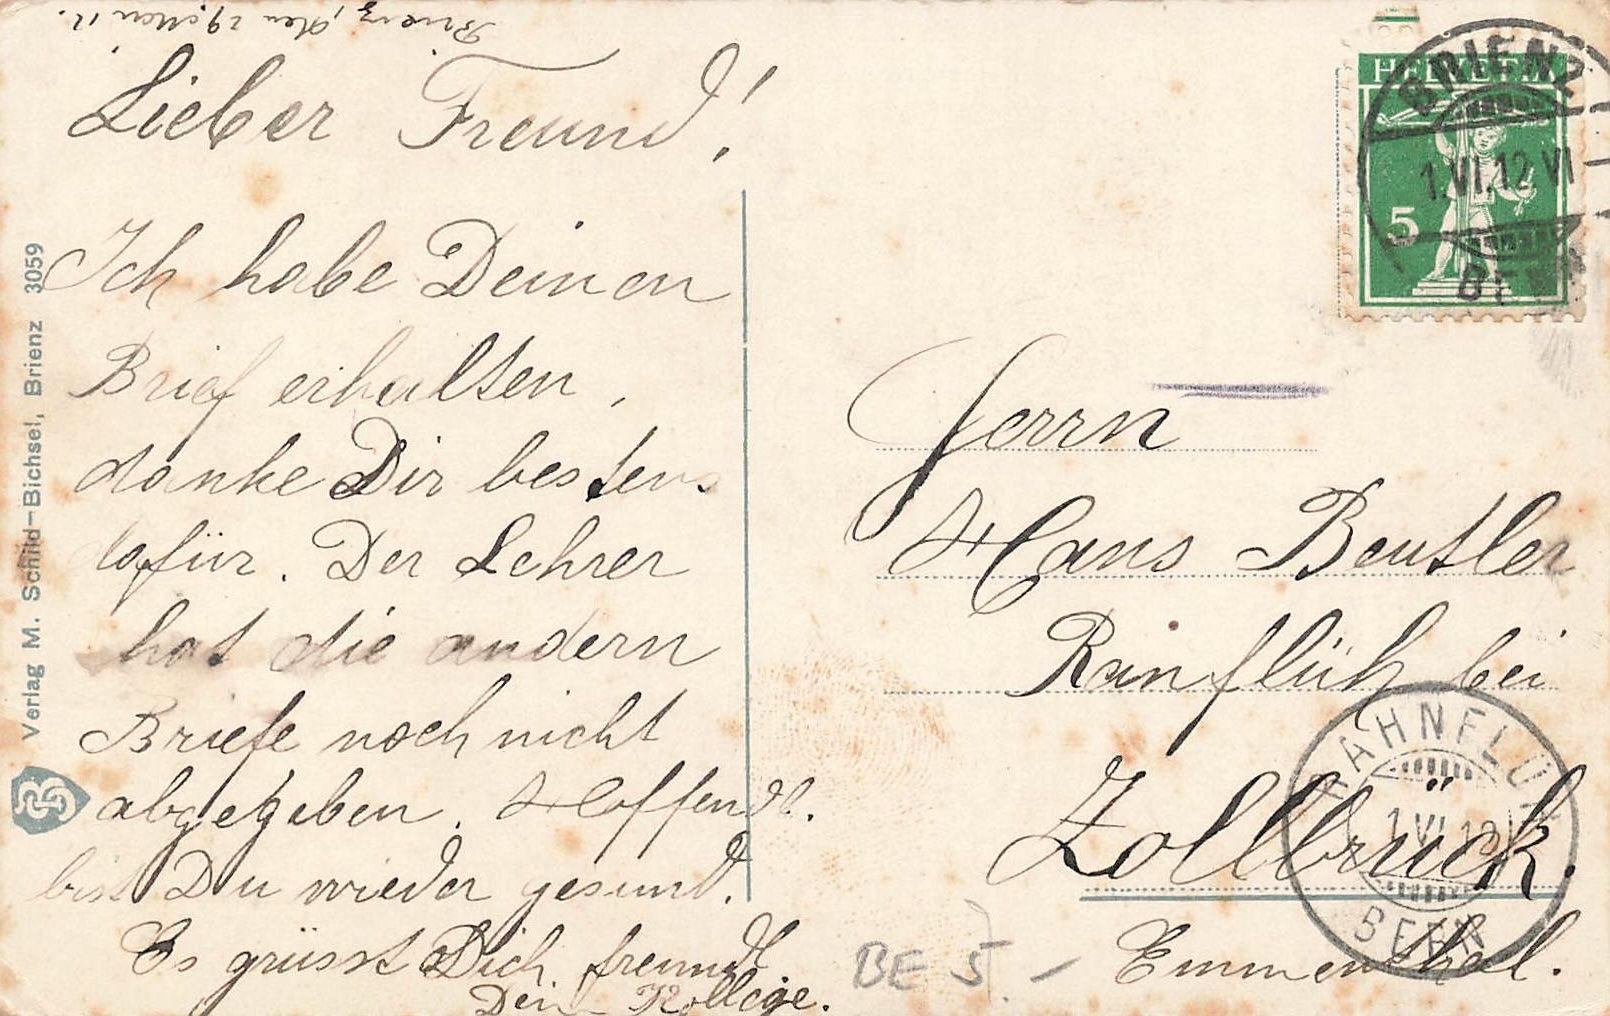 Brienz, den 29. Mai 12.
Lieber Freund!
Ich habe Deinen
Brief erhalten,
danke Dir bestens
dafür. Der Lehrer
hat die andern
Briefe noch nicht
abgegeben. Hoffendl.
bist Du wieder gesund.
Es grüsst Dich freundl.
Dein Kollege.
Verlag M. Schild-Bichsel, Brienz 3059
HELVETIA
5
BRIENZ
1.VI.12 VI
Herrn
Hans Beutler
Ranflüh bei
Zollbrück.
Emmenthal.
RAHNFLÜH
1.VI.12
BERN
BE 5.-